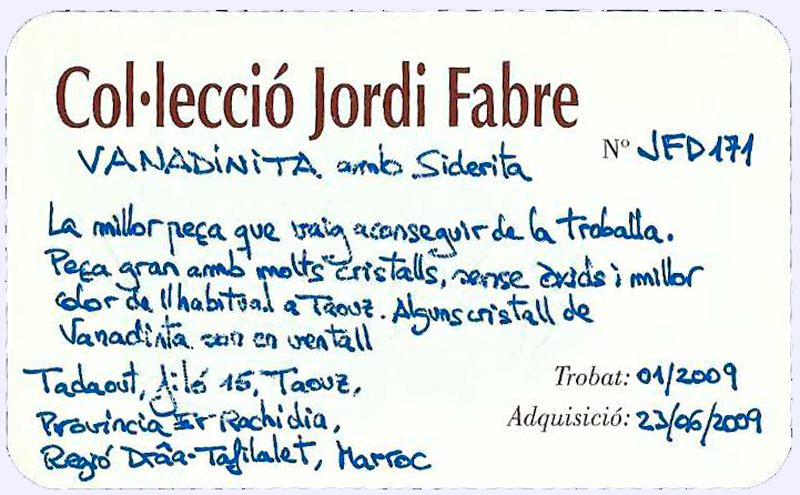 Col·lecció Jordi Fabre
Nº JFD171
VANADiNiTA amb Siderita
La millor peça que vaig aconseguir de la troballa.
Peça gran amb molts cristalls, sense òxids i millor
color de l'habitual a Taouz. Alguns cristall de
Vanadinta son en ventall
Tadaout, filó 15, Taouz,
Trobat: 01/2009
Província Er Rachidia,
Adquisició: 23/06/2009
Regió Drâa-Tafilalet, Marroc